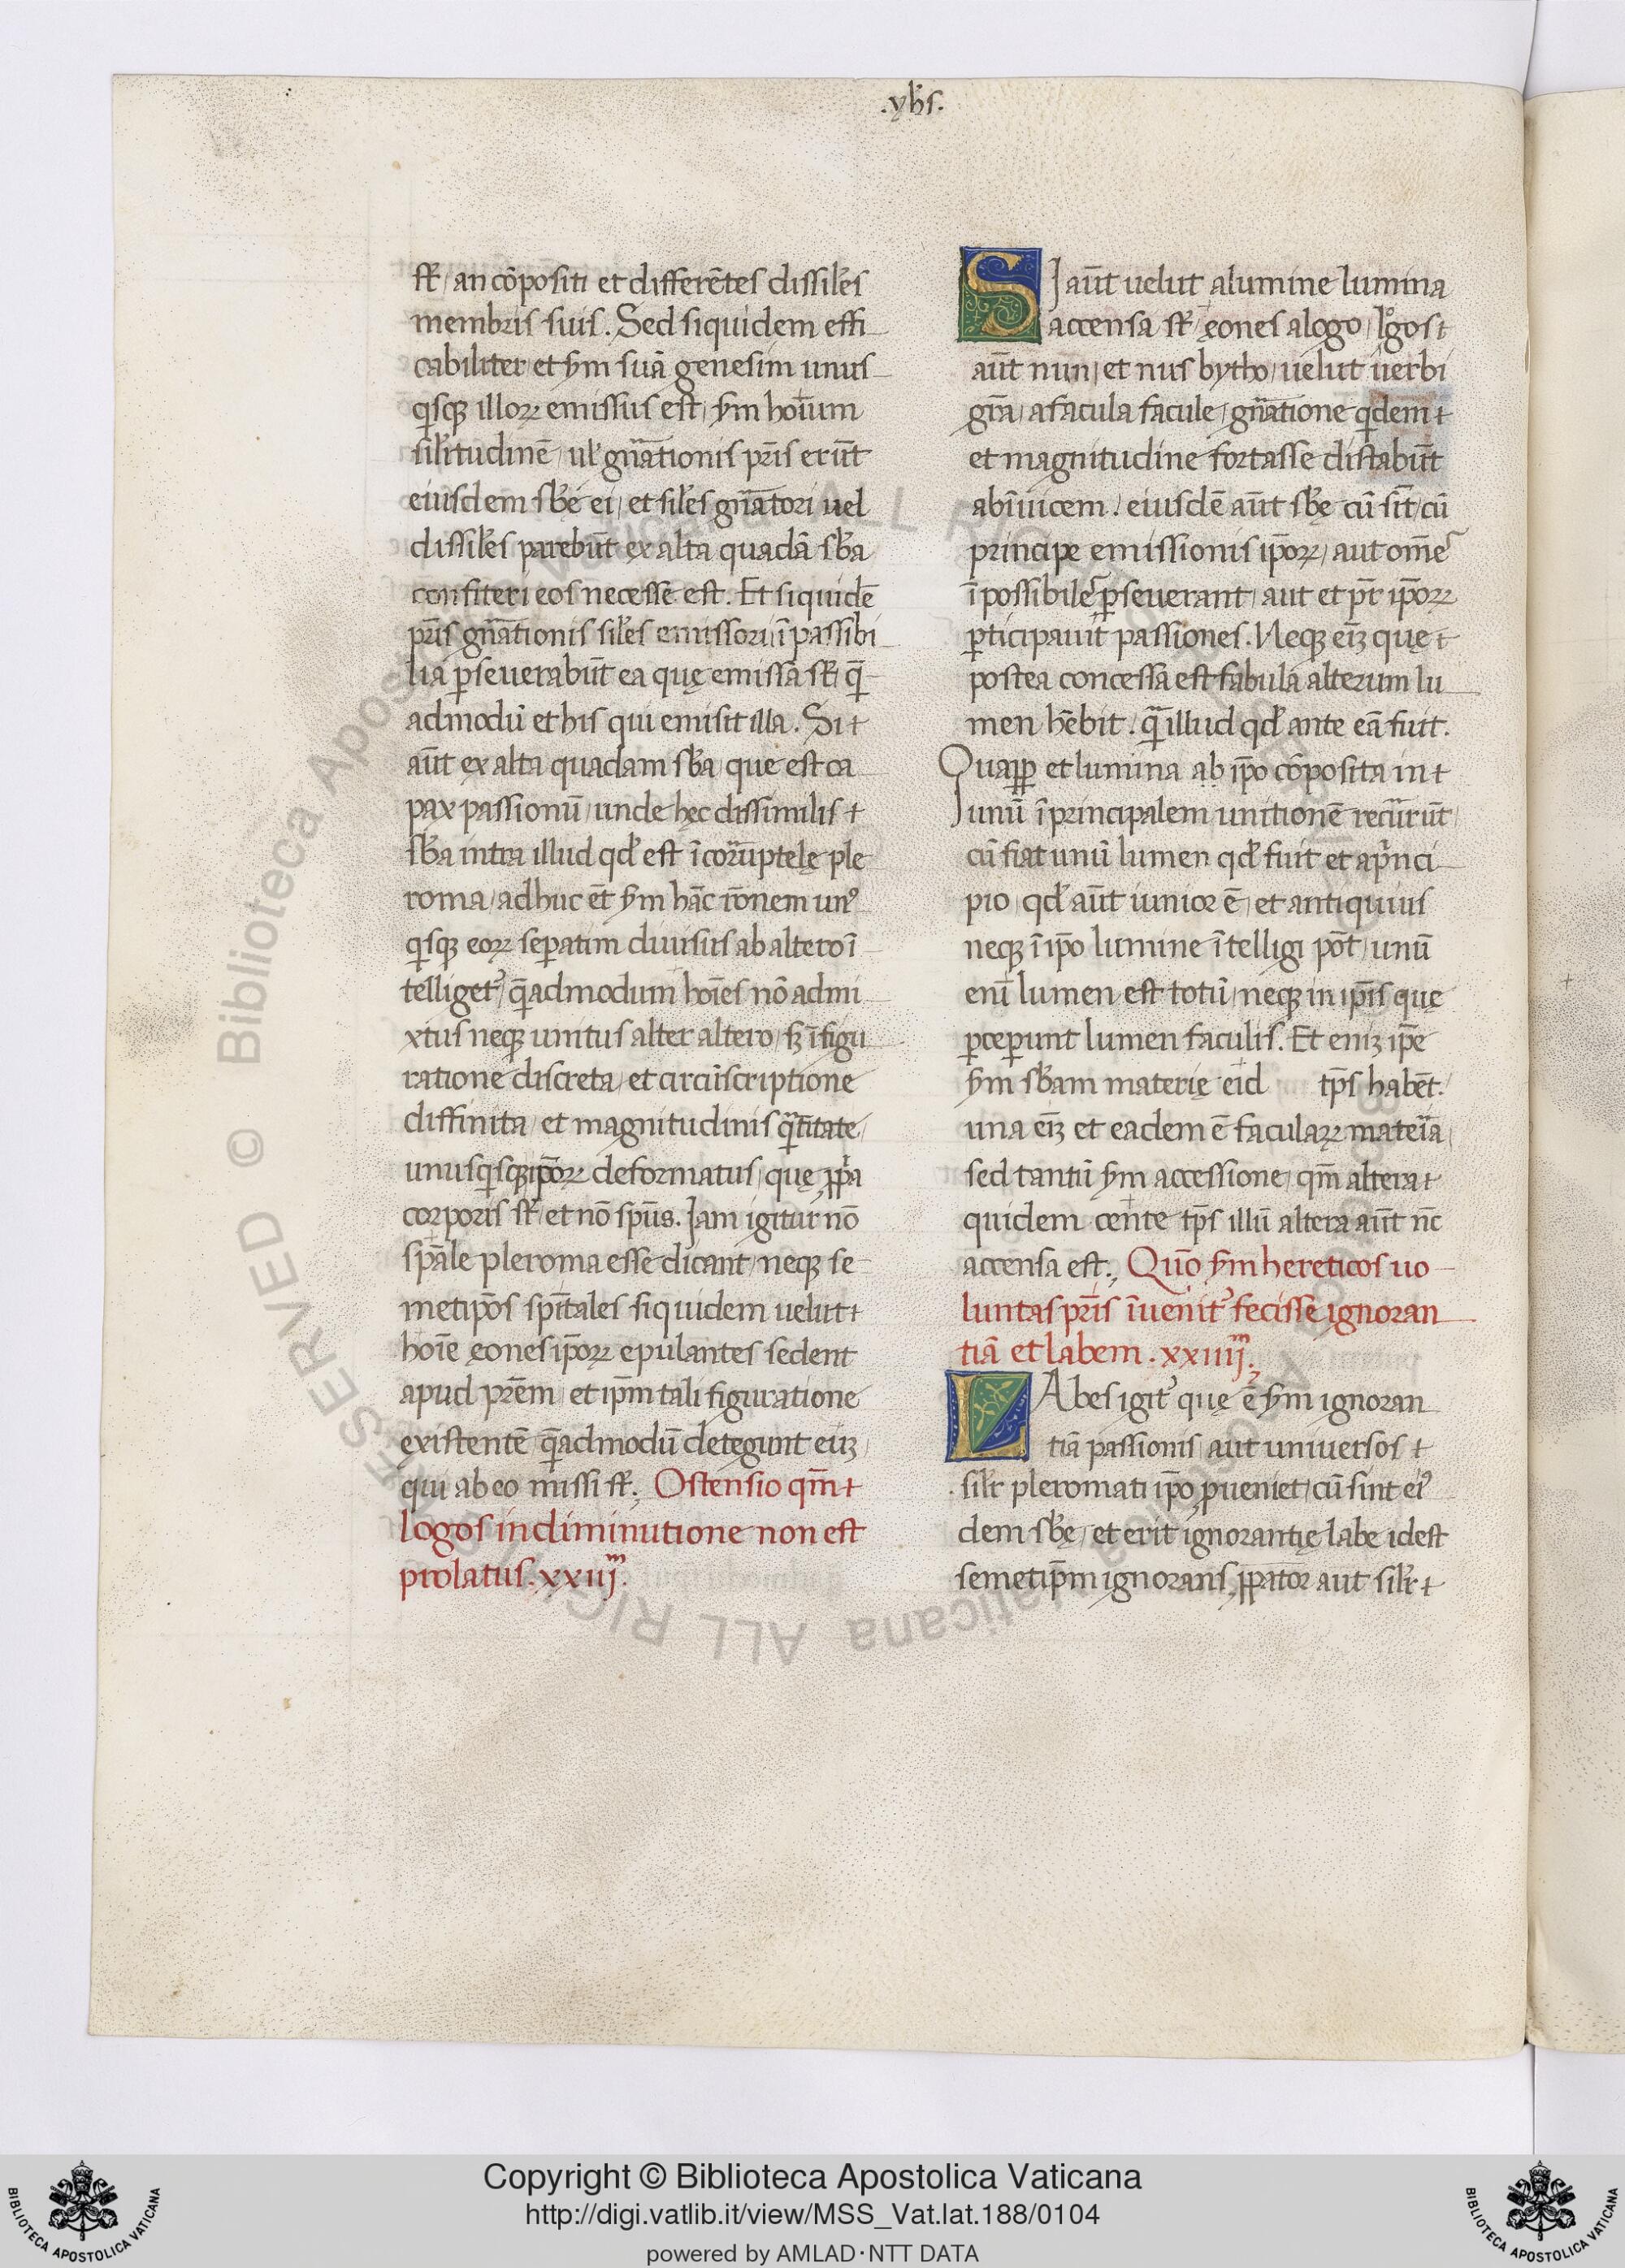 .yħs.
sꝉ, an cōpositi et differētes dissiles
membris suis. Sed siquidem effi
cabiliter, et ẏm suā genesim unus
qsqꝫ illoꝝ emissus est, ẏm hoīum
silitudinē, uł gn̄ationis pr̄is erūt
eiusdem sbē ei, et siłes gn̄atori uel
dissiłes parebūt ex alta quadā sƀa
confiteri eos necesse est. Et siquidē
pr̄is gn̄ationis siłes emissori, īpassibi
lia ꝑseuerabūt ea quę emissa sꝉ, q̄
admodū et his qui emisit illa. Si
aūt ex alta quadam sƀa, que est ca
pax passionū, unde hęc dissimilis
sƀa intra illud qđ est īcoruptelę ple
roma, adhuc ēt ẏm hāc rōnem unꝰ
qsqꝫ eoꝝ seꝑatim diuisus ab altero ī
telliget᷑, q̄admodum hoīes nō admi
xtus neqꝫ unitus alter altero, sꝫ ī figu
ratione discreta, et circūscriptione
diffinita, et magnitudinis q̄titate,
unusqsqꝫ ip̄oꝝ deformatus, quę ꝓpa
corporis sꝉ, et nō sp̄us. Jam igitur nō
sp̄ale pleroma esse dicant, neqꝫ se
metip̄os sp̄itales siquidem uelut
hoīe ęones ip̄oꝝ epulantes sedent
apud pr̄em, et ip̄m tali figuratione
existentē q̄admodū detegunt eiꝫ,
qui ab eo missi sꝉ. Ostensio qm̄
logos in diminutione non est
prolatus. xxiij.
SJ aūt uelut a lumine lumina
accensa sꝉ ęones a logo, lºgos
aūt nun, et nus bytho, uelut uerbi
grā, a facula facule, gn̄atione qdem
et magnitudine fortasse distabūt
abīuicem. eiusdē aūt sƀę cū sīt cū
principe emissionis ip̄oꝝ, aut om̄e
īpossibile ꝑseuerant, aut et pr̄ ip̄oꝝ
ꝑticipauit passiones. Neqꝫ eiꝫ quę
postea concessa est fabula alterum lu
men hēbit. q̄ illud qđ ante eā fuit.
Quaꝓꝑ et lumina ab ip̄o cōposita in
unū ī principalem unitionē recurūt
cū fiat unū lumen qđ fuit et a prnci
pio, qđ aūt iunior ē, et antiquius
neqꝫ ī ip̄o lumine ītelligi pōt, unū
enī lumen est totū, neqꝫ in ip̄is quę
ꝑceꝑunt lumen faculis. Et eniꝫ ip̄e
ẏm sƀam materię eid tp̄s habēt.
una eiꝫ et eadem ē facularꝝ materia,
sed tantū ẏm accessione, qm̄ altera
quidem cente tp̄s illū altera aūt nc̄
accensa est. Quō ẏm hereticos uo
luntas pr̄is īuenit᷑ fecisse ignoran
tiā et labem. xxiiij.
LAbes igit᷑ quę ē ẏm ignoran
tiā passionis, aut universos
silr pleromati ip̄o ꝓueniet, cū sint eiꝰ
dem sƀę, et erit ignorantię labe idest
semetip̄m ignorans, ꝓpator aut silr
© Biblioteca Apostolica Vaticana ALL RIGHTS RESERVED
Copyright © Biblioteca Apostolica Vaticana
http://digi.vatlib.it/view/MSS_Vat.lat.188/0104
powered by AMLAD·NTT DATA
BIBLIOTECA APOSTOLICA VATICANA
BIBLIOTECA APOSTOLICA VATICANA